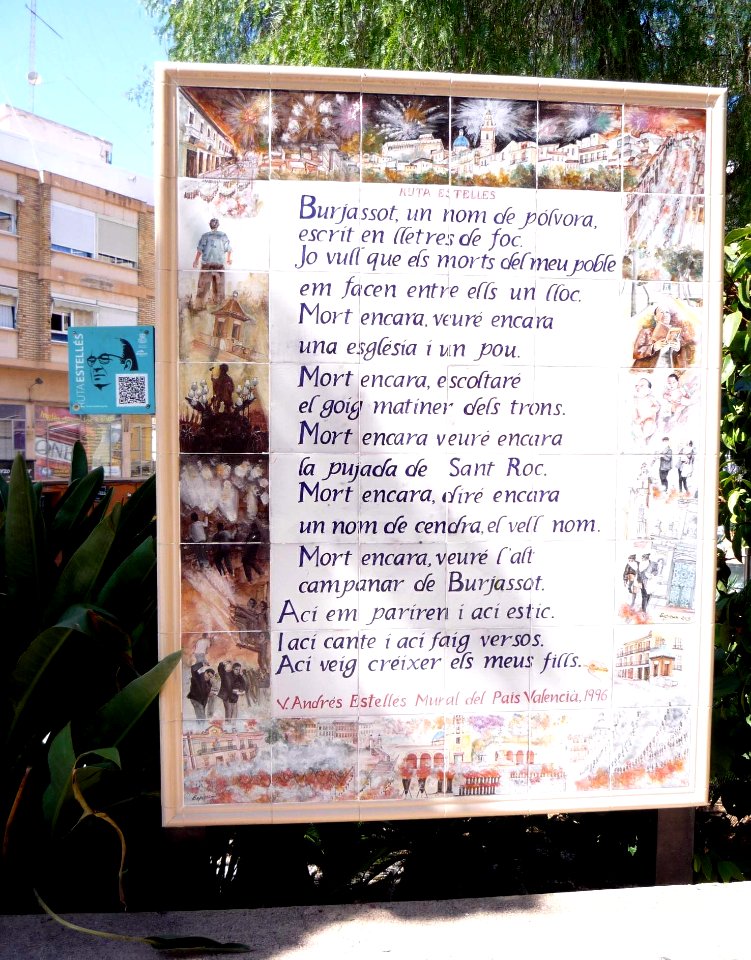 RUTA ESTELLÉS
RUTA ESTELLES
Burjassot, un nom de pólvora,
escrit en lletres de foc.
Jo vull que els morts del meu poble
em facen entre ells un lloc.
Mort encara, veuré encara
una església i un pou.
Mort encara, escoltaré
el goig matiner dels trons.
Mort encara veuré encara
la pujada de Sant Roc.
Mort encara, diré encara
un nom de cendra, el vell nom.
Mort encara, veuré l'alt
campanar de Burjassot.
Ací em pariren i ací estic.
I ací cante i ací faig versos.
Ací veig créixer els meus fills.
V. Andrés Estellés Mural del País Valencià, 1996